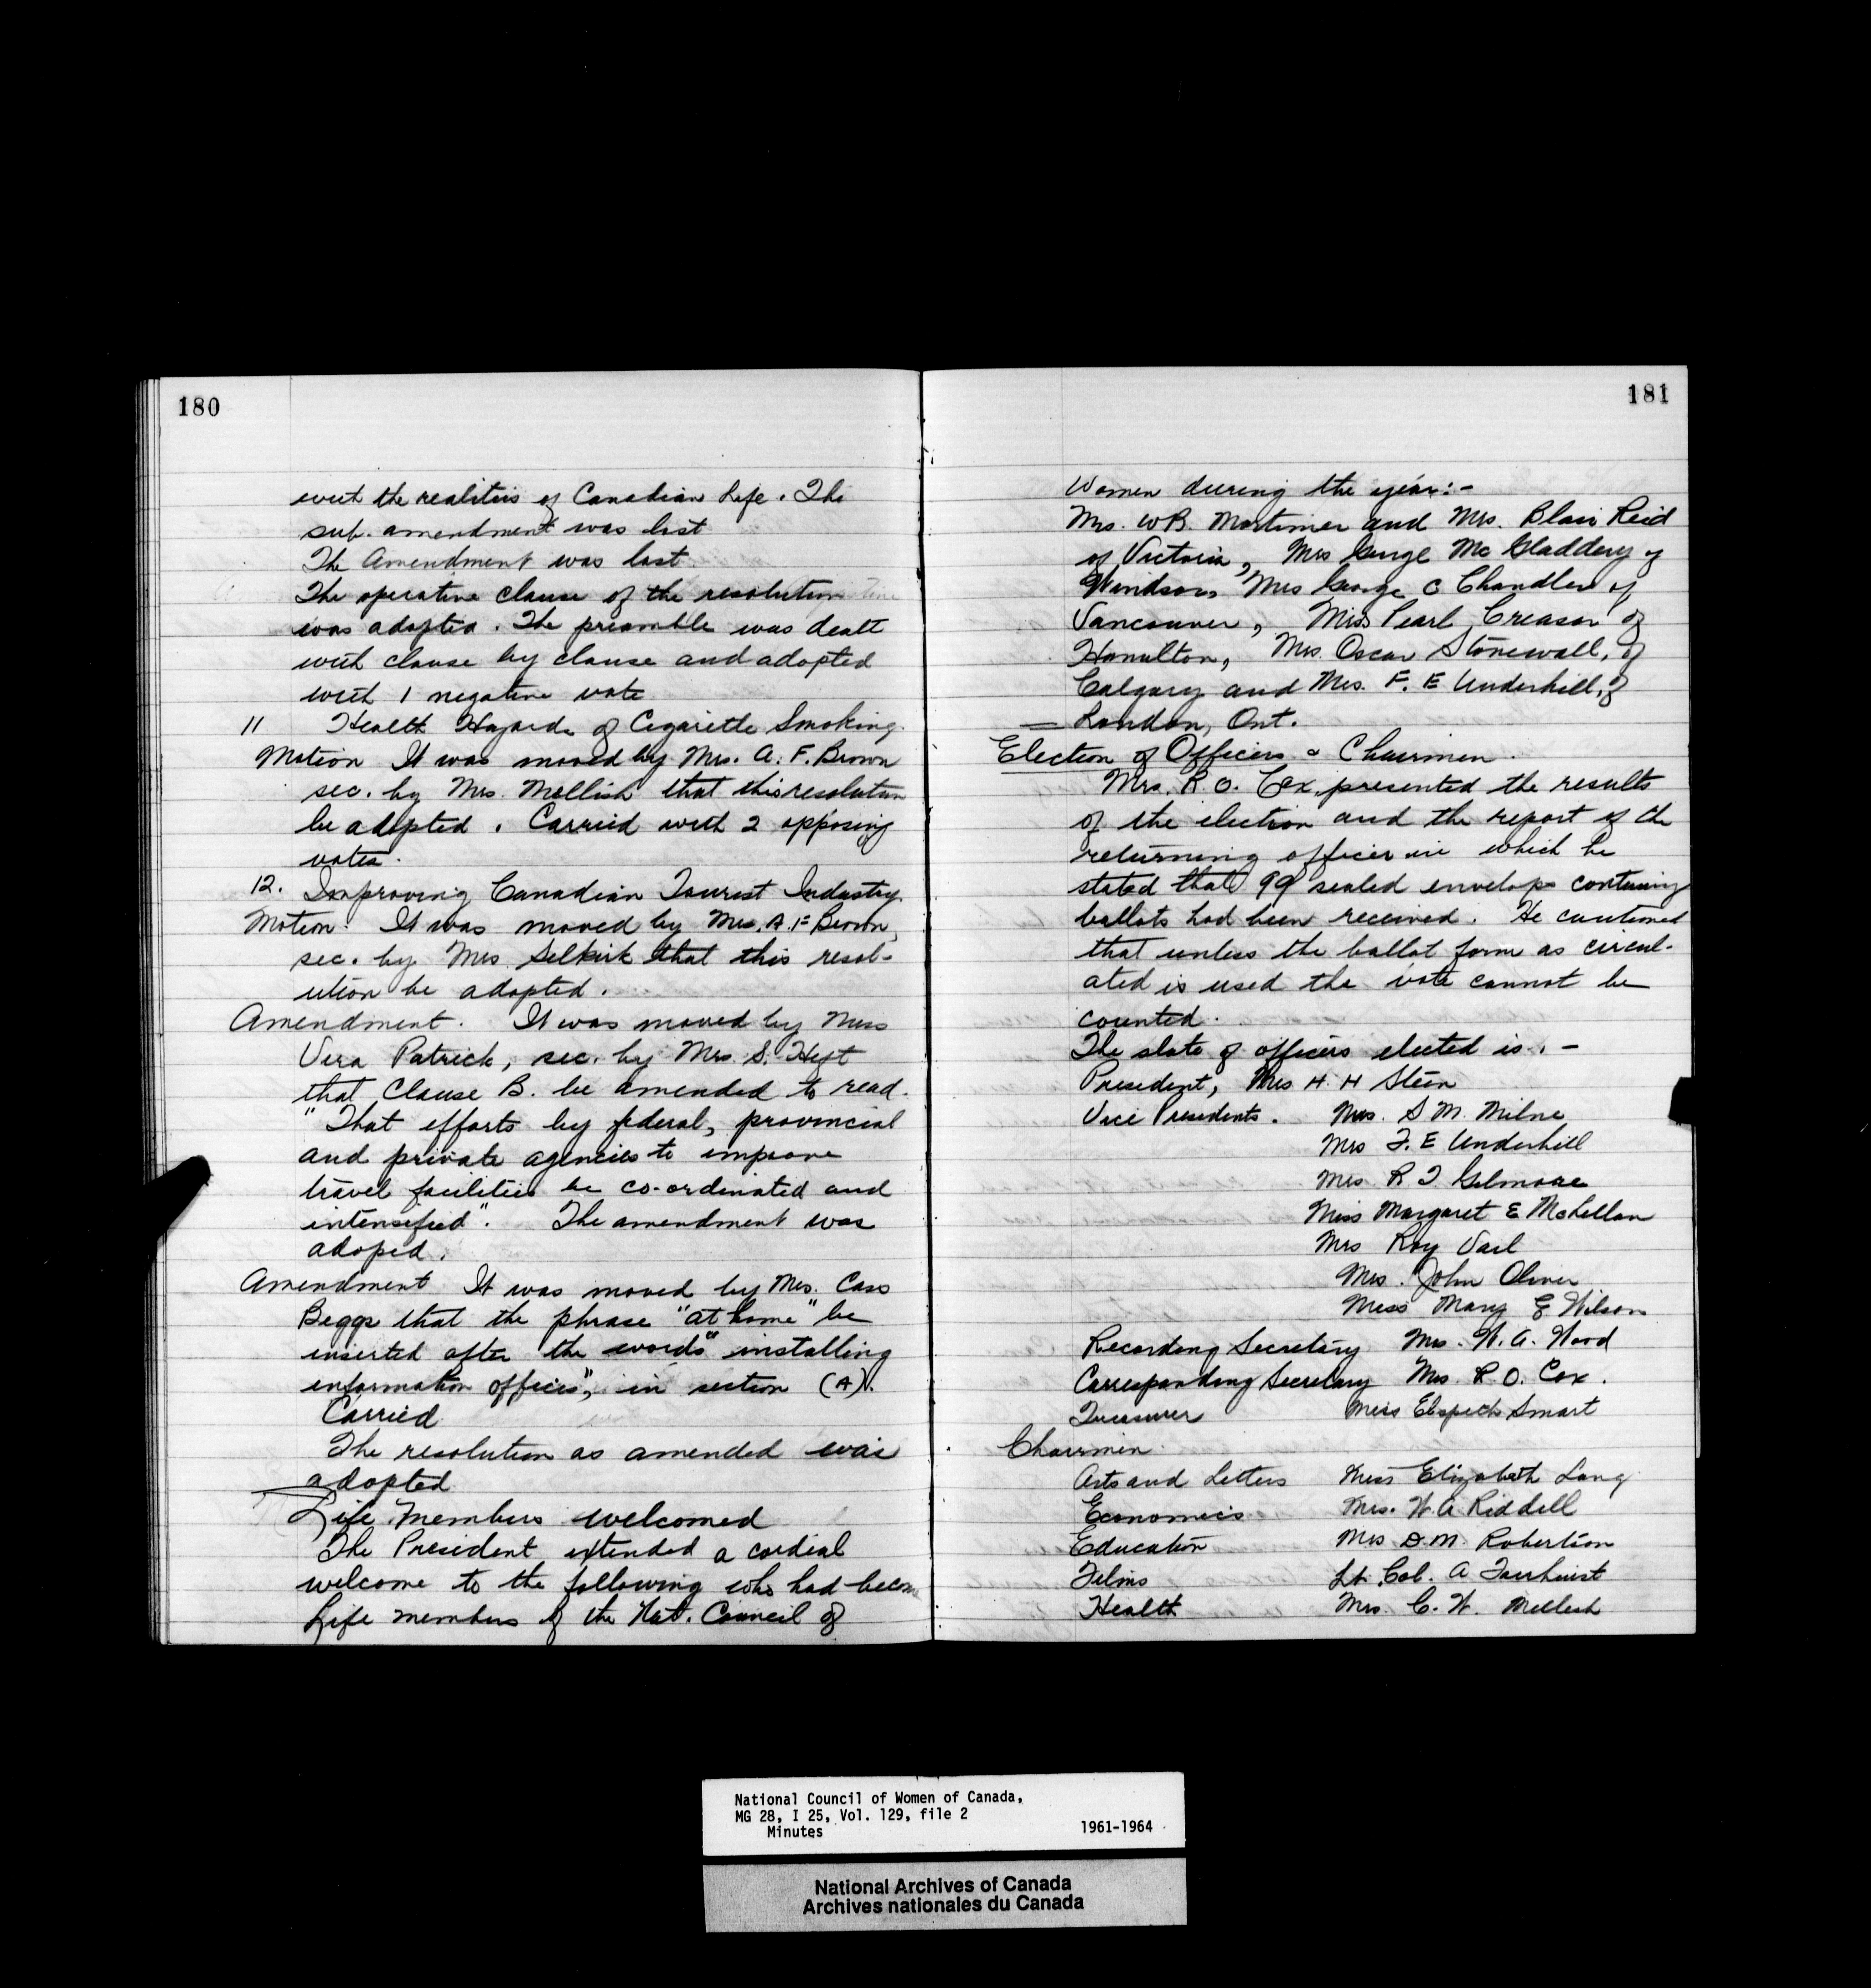 180
with the realities of Canadian Life. The
sub. amendment was lost
The Amendment was lost.
The operative clause of the resolution
was adopted. The preamble was dealt
with clause by clause and adopted
with 1 negative vote
11 Health Hazards of Cigarette Smoking.
Motion It was moved by Mrs. A. F. Brown
sec. by Mrs. Mellish that this resolution
be adopted. Carried with 2 opposing
votes.
12. Improving Canadian Tourist Industry.
Motion. It was moved by Mrs. A. F Brown,
sec. by Mrs. Selkirk that this resol-
ution be adopted.
Amendment. It was moved by Miss
Vera Patrick, sec. by Mrs S.
that Clause B. be amended to read.
"That efforts by federal, provincial
and private agencies to improve
travel facilities be co-ordinated and
intensified". The amendment was
adoped.
Amendment It was moved by Mrs. Cass
Beggs that the phrase "at home" be
inserted after the words "installing
information offices", in section (A).
Carried
The resolution as amended was
adopted
Life Members welcomed
The President extended a cordial
welcome to the following who had become
Life members of the Nat. Council of
181
Women during the year:-
Mrs. W B. Mortimer and Mrs. Blair Reid
of Victoria, Mrs George Mc Gladdery of
Windsor, Mrs George C Chandler of
Vancouver, Miss Pearl Creasor of
Hamilton, Mrs. Oscar Stonewall, of
Calgary and Mrs. F. E Underhill, of
London, Ont.
Election of Officers & Chairmen.
Mrs. R. O. Cox, presented the results
of the election and the report of the
returning officer in which he
stated that 99 sealed envelops containing
ballots had been received. He cautioned
that unless the ballot form as circul-
ated is used the vote cannot be
counted.
The slate of officers elected is. -
President, Mrs H. H Steen
Vice Presidents. Mrs. S M. Milne
Mrs F. E Underhill
Mrs R T. Gilmore
Miss Margaret E McLellan
Mrs Roy Vail
Mrs. John Oliver
Miss Mary E Wilson
Recording Secretary Mrs. W. A. Wood
Corresponding Secretary Mrs. R. O. Cox.
Treasurer Miss Elspeth Smart
Chairmen
Arts and Letters Miss Elizabeth Long
Economics Mrs. W. A. Riddell
Education Mrs D. M. Robertson
Films Lt. Col. A Fairhurst
Health Mrs. C. W. Mellish
National Council of Women of Canada,
MG 28, I 25, Vol. 129, file 2
Minutes 1961-1964
National Archives of Canada
Archives nationales du Canada